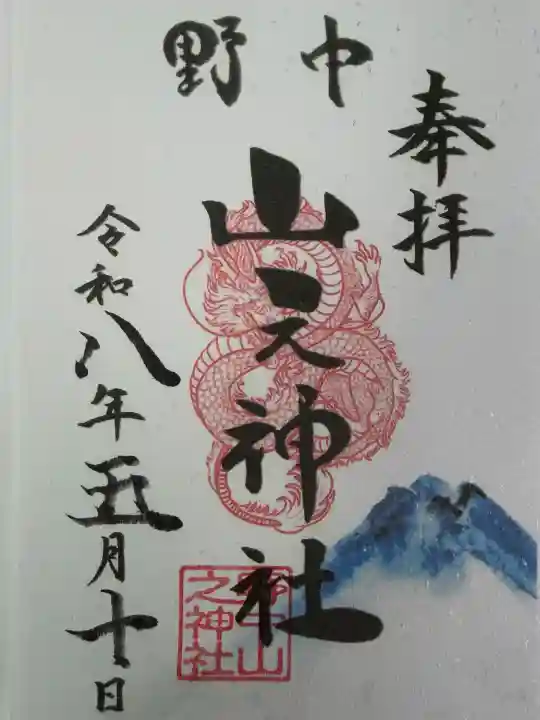 奉拝
中野
山之神社
令和八年五月十日
野中山
之神社